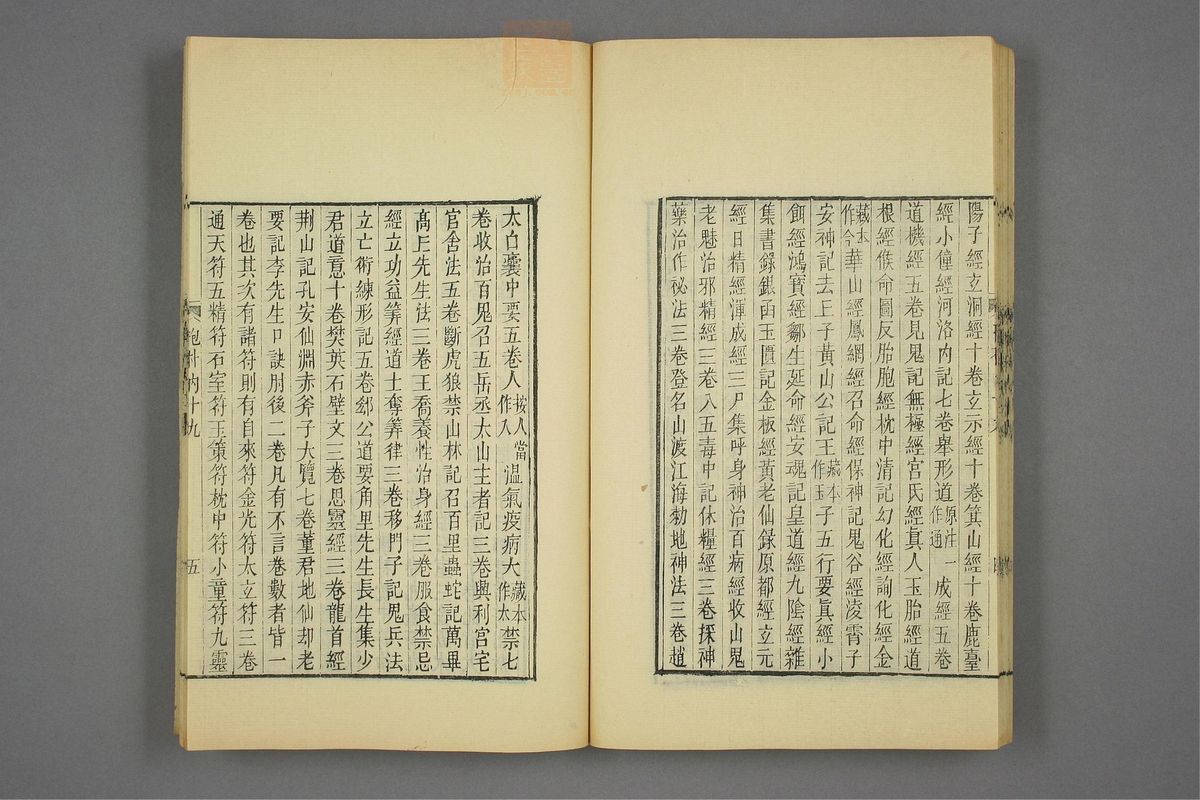 陽子經立洞經十卷立示經十卷箕山經十卷鹿臺
經小僮經河洛內記七卷舉形道原注作通一成經五卷
道機經五卷見鬼記無極經宮氏經眞人玉胎經道
根經候命圖反胎胞經枕中清記幻化經詢化經金
藏本作今華山經鳳網經召命經保神記鬼谷經淩霄子
安神記去丘子黃山公記王藏本作玉子五行要眞經小
餌經鴻寶經鄒生延命經安魂記皇道經九陰經雜
集書錄銀函玉匱記金板經黃老仙錄原都經立元
經日精經渾成經三尸集呼身神治百病經收山鬼
老魅治邪精經三卷入五毒中記休糧經三卷採神
藥治作祕法三卷登名山渡江海勅地神法三卷趙
太白囊中要五卷人按人當作入溫氣疫病大藏本作太禁七
卷收治百鬼召五岳丞太山主者記三卷興利宮宅
官舍法五卷斷虎狼禁山林記召百里蟲蛇記萬畢
高丘先生法三卷王喬養性治身經三卷服食禁忌
經立功益筭經道士奪筭律三卷移門子記鬼兵法
立亡術練形記五卷郄公道要角里先生長生集少
君道意十卷樊英石壁文三卷思靈經三卷龍首經
荆山記孔安仙淵赤斧子大覽七卷董君地仙却老
要記李先生口訣肘後二卷凡有不言卷數者皆一
卷也其次有諸符則有自來符金光符太立符三卷
通天符五精符石室符玉策符枕中符小童符九靈
抱朴內十九
五